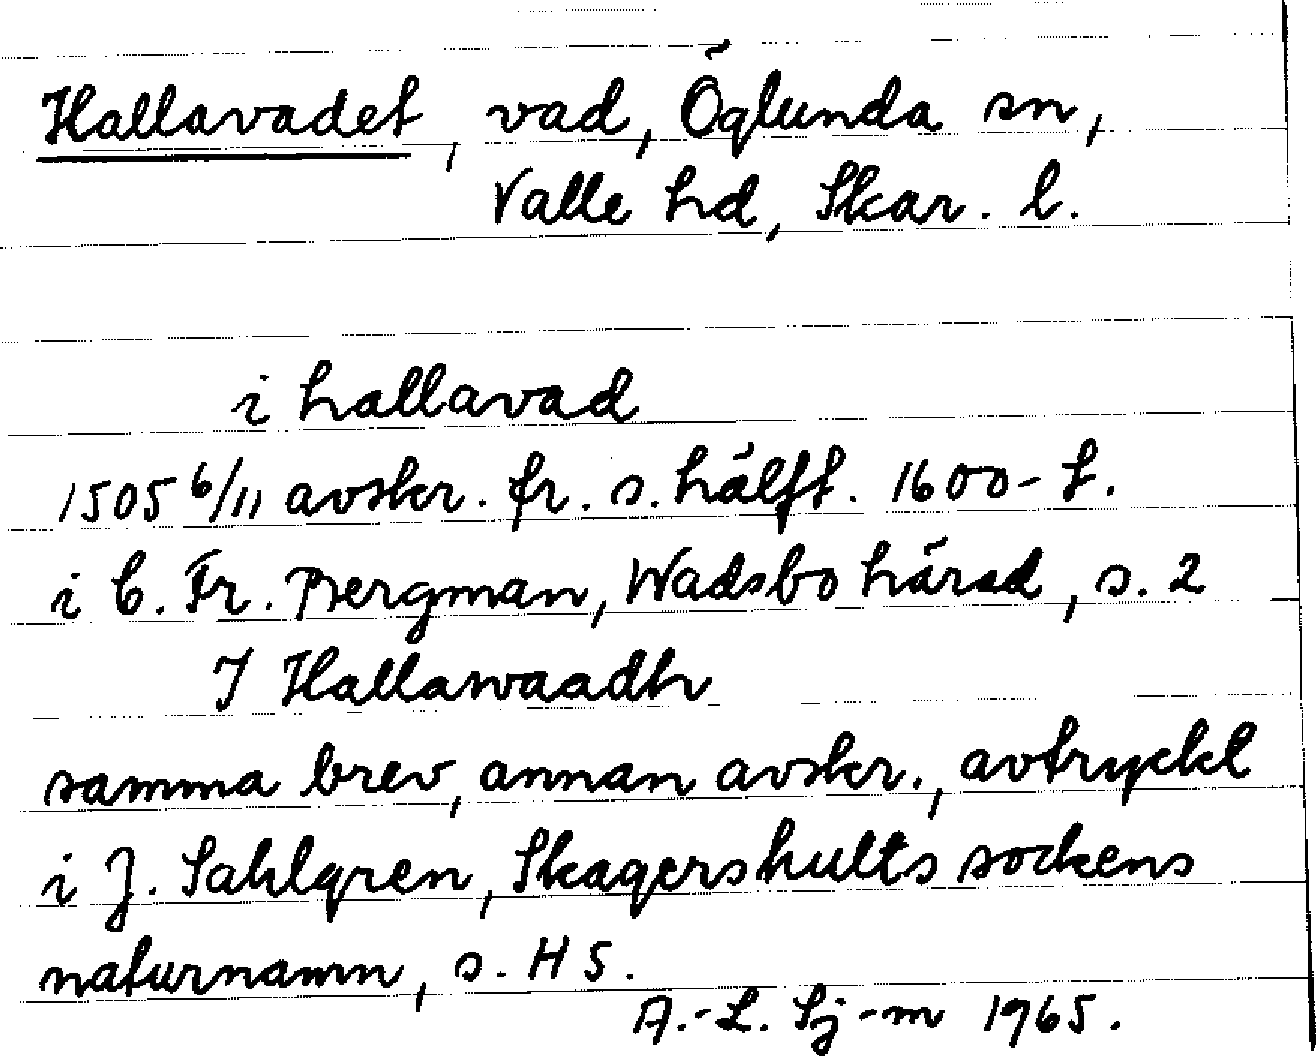 Hallavadet, vad, Öglunda sn,
Valle hd, Skar. l.
i hallavad
1505 6/11 avskr. fr. s. hälft. 1600-t.
i C. Fr. Bergman, Wadsbo härad, s. 2
J Hallawaadh
samma brev, annan avskr., avtryckt
i J. Sahlgren, Skagershults sockens
naturnamn, s. H 5.
A.-L. Sj-m 1965.